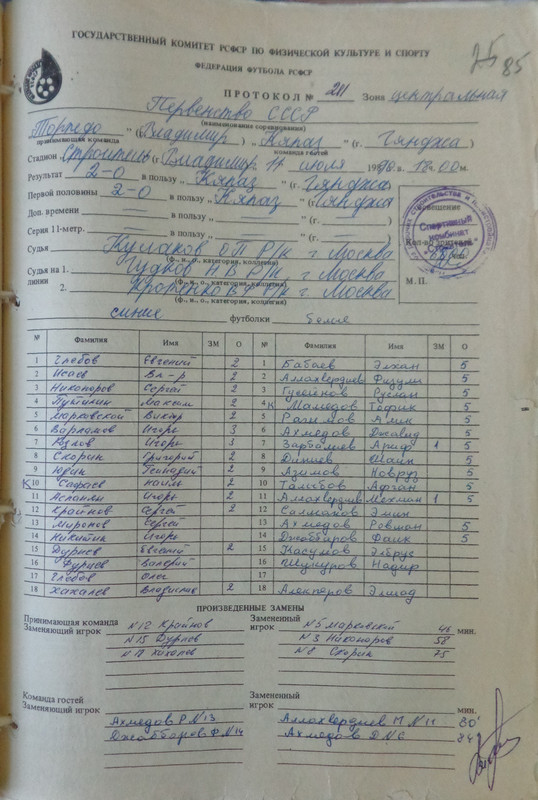 ГОСУДАРСТВЕННЫЙ КОМИТЕТ РСФСР ПО ФИЗИЧЕСКОЙ КУЛЬТУРЕ И СПОРТУ
ФЕДЕРАЦИЯ ФУТБОЛА РСФСР
85
ПРОТОКОЛ № 211 Зона центральная
Первенство СССР
(наименование соревнования)
Торпедо " (Владимир) „ Кяпаз " (г. Гянджа)
принимающая команда команда гостей
Стадион Строитель (Владимир 11 июля 1990 г. 18.00 м.
Результат 2-0 в пользу „ Кяпаз " (г. Гянджа
Первой половины 2-0 в пользу „ Кяпаз " (г. Гянджа
Доп. времени — в пользу „ — " (г. — )
Серия 11-метр. — в пользу „ — " (г. — )
Судья Кулаков О П Р/к г. Москва
(ф., и., о., категория, коллегия)
Судья на 1. Гудков Н В Р/к, г. Москва
линии (ф., и., о., категория, коллегия)
2. В Ф Р/к г. Москва
(ф., и., о., категория, коллегия)
Кол-во зрителей
М. П.
синие футболки белые
№ Фамилия Имя ЗМ О № Фамилия Имя ЗМ О
1 Глебов Евгений 2 1 Бабаев Элхан 5
2 Исаев Вл-р 2 2 Аллахвердиев Физули 5
3 Никоноров Сергей 2 3 Гусейнов Руслан 5
4 Путилин Максим 2 4 К Мамедов Тофик 5
5 Марковский Виктор 2 5 Рагимов 5
6 Варламов Игорь 3 6 Ахмедов Джавид 5
7 Козлов Игорь 3 7 Зарбалиев Ариф 1 5
8 Скорик Григорий 2 8 Шаик 5
9 Юдин Геннадий 2 9 Азимов Новруз 5
К 10 Сафаев Наиль 2 10 Талыбов Афган 5
11 Асланян Игорь 2 11 Аллахвердиев Мехман 1 5
12 Крайнов Сергей 2 12 Салманов Эмин
13 Миронов Сергей 13 Ахмедов Ровшан 5
14 Никитин Игорь 14 Джаббаров Фаик 5
15 Дурнев Евгений 2 15 Касумов Элбрус
16 Фурцев Валерий 16 Шукуров Надир
17 Глебов Олег 17
18 Хахалев Владислав 2 18 Алекперов Элшад
ПРОИЗВЕДЕННЫЕ ЗАМЕНЫ
Принимающая команда Замененный
Заменяющий игрок №12 Крайнов игрок №5 Марковский 46 мин.
№15 Дурнев №3 Никоноров 58
Хахалев №8 Скорик 75
Команда гостей Замененный
Заменяющий игрок игрок мин.
Ахмедов Р №13 Аллахвердиев М №11 80'
Джаббаров Ф №14 Ахмедов Д №6